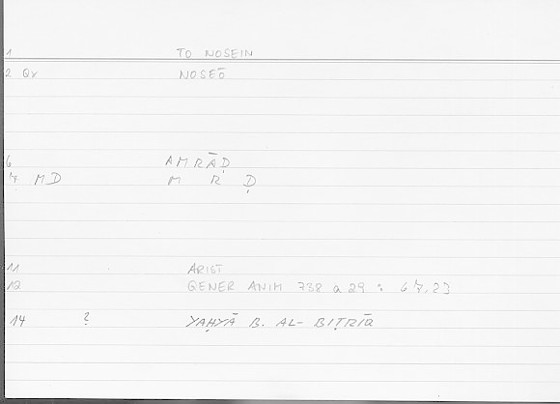 1 TO NOSEIN
2 QV NOSEŌ
6 AMRĀḌ
7 MD M R Ḍ
11 ARIST
12 GENER ANIM 738 a 29 : 67.23
14 ? YAḤYĀ B. AL-BIṬRĪQ